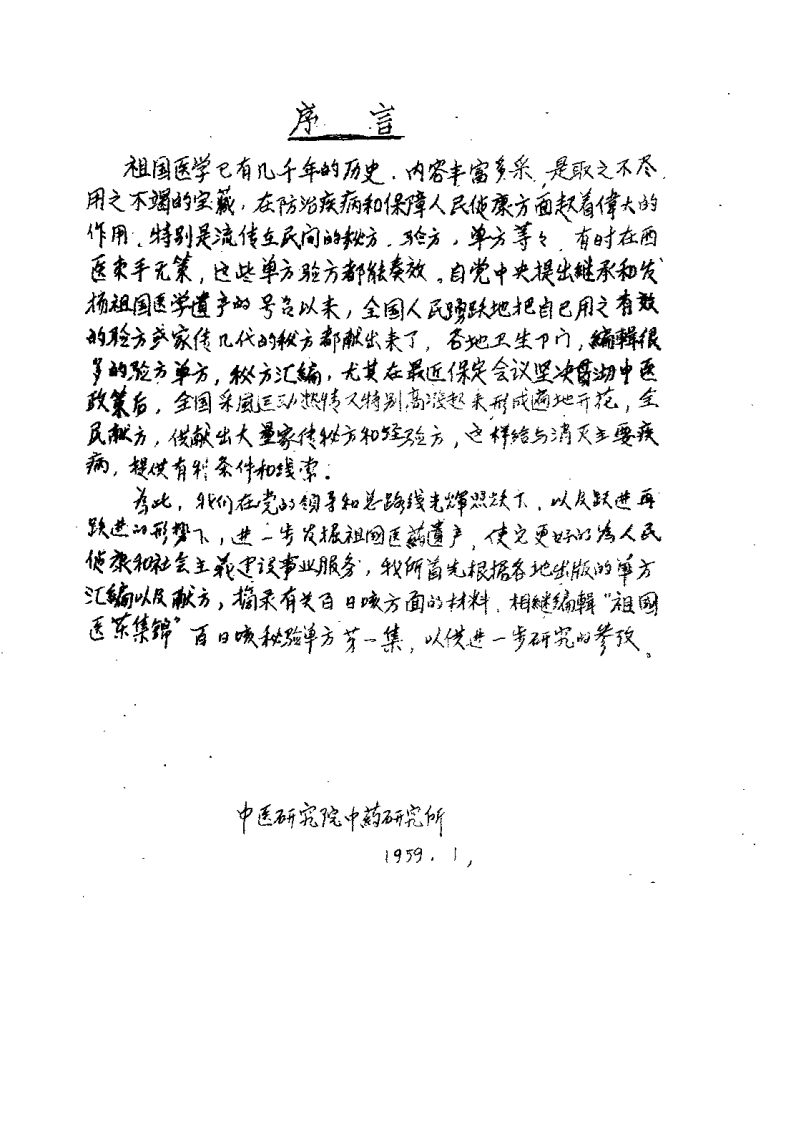 序言
祖国医学已有几千年的历史，内容丰富多采，是取之不尽
用之不竭的宝藏，在防治疾病和保障人民健康方面起着偉大的
作用，特别是流传在民间的秘方，验方，单方等々，有时在西
医束手无策，这些单方验方都能奏效。自党中央提出继承和发
扬祖国医学遺产的号召以来，全国人民踴跃地把自已用之有效
的验方或家传几代的秘方都献出来了，各地卫生卩门，编輯很
多的验方单方，秘方汇编，尤其在最近保定会议坚决贯彻中医
政策后，全国采風运动热情又特别高涨起来形成遍地开花，全
民献方，供献出大量家传秘方和经验方，这样给与消灭主要疾
病，提供有利条件和线索。
为此，我们在党的领导和总路线光輝照耀下，以及跃进再
跃进的形势下，进一步发掘祖国医药遺产，使它更好的为人民
健康和社会主義建设事业服务，我所首先根据各地出版的单方
汇编以及献方，摘录有关百日咳方面的材料，相继编輯“祖国
医药集锦”百日咳秘验单方第一集，以供进一步研究的参攷。
中医研究院中药研究所
1959.1,